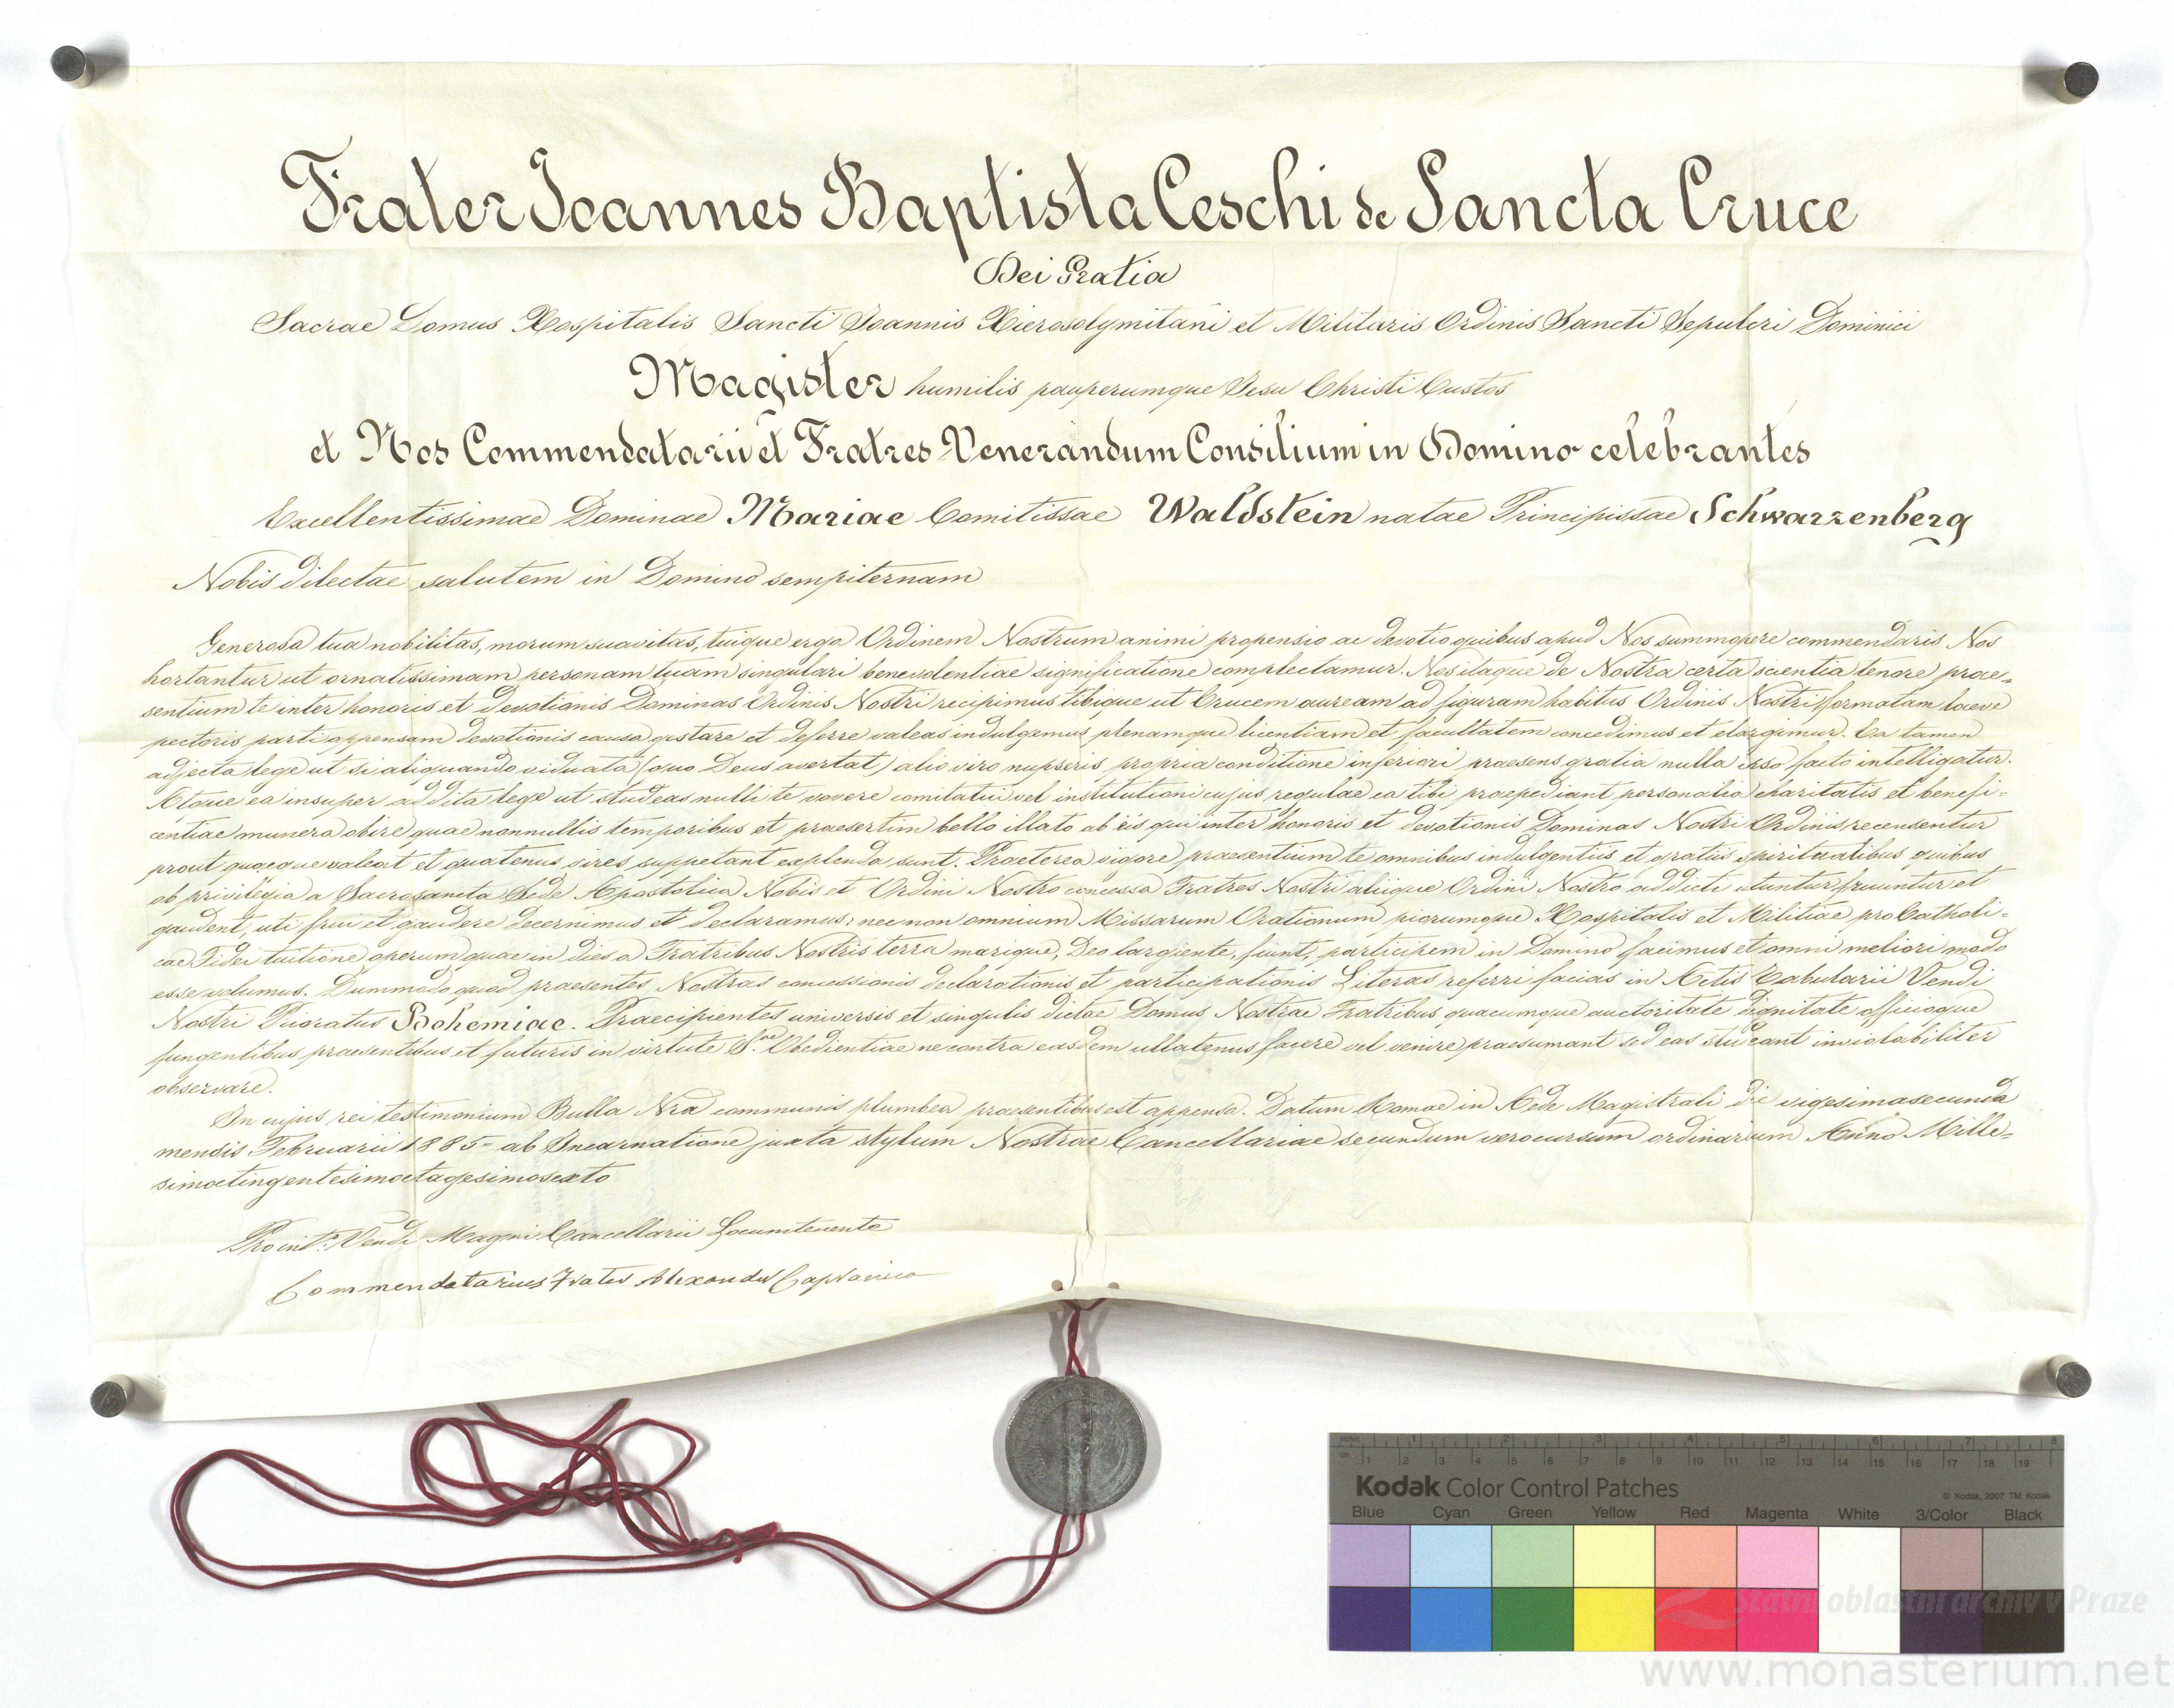 Frater Joannes Baptista Ceschi de Sancta Cruce
Dei Gratia
Sacrae Domus Hospitalis Sancti Joannis Hierosolymitani et Militaris Ordinis Sancti Sepulcri Dominici
Magister humilis pauperumque Jesu Christi Custos
et Nos Commendatarii et Fratres Venerandum Consilium in Domino celebrantes
Excellentissimae Dominae Mariae Comitissae Waldstein natae Principissae Schwarzenberg
Nobis dilectae salutem in Domino sempiternam
Generosa tua nobilitas, morum suavitas, tuique erga Ordinem Nostrum animi propensio ac devotio quibus apud Nos summopere commendaris Nos
hortantur ut ornatissimam personam tuam singulari benevolentiae significatione complectamur. Nos itaque de Nostra certa scientia tenore prae=
sentium te inter honoris et devotionis Dominas Ordinis Nostri recipimus tibique ut Crucem auream ad figuram habitus Ordinis Nostri formatam laeve
pectoris parti appensam devotionis causa gestare et deferre valeas indulgemus plenamque licentiam et facultatem concedimus et elargimur. Ea tamen
adjecta lege ut si aliquando viduata (quo Deus avertat) alio viro nupseris propria conditione inferiori praesens gratia nulla ipso facto intelligatur.
Atque ea insuper addita lege ut studeas nulli te vovere comitatui vel institutioni cujus regulae ea tibi praepediant personalia charitatis et benefi=
centiae munera obire quae nonnullis temporibus et praesertim bello illato ab iis qui inter honoris et devotionis Dominas Nostri Ordinis recensentur
prout quaeque valeat et quatenus vires suppetant explenda sunt. Praeterea vigore praesentium te omnibus indulgentiis et gratiis spiritualibus quibus
ob privilegia a Sacrosancta Sede Apostolica Nobis et Ordini Nostro concessa Fratres Nostri aliique Ordini Nostro addicti utuntur fruuntur et
gaudent, uti frui et gaudere decernimus et declaramus; nec non omnium Missarum Orationum piorumque Hospitalis et Militiae pro Catholi=
cae Fidei tuitione operum quae in dies a Fratribus Nostris terra marique, Deo largiente, fiunt, participem in Domino facimus et omni meliori modo
esse volumus. Dummodo quod praesentes Nostras concessionis declarationis et participationis Literas referri facias in Actis Tabularii Vendi
Nostri Prioratus Bohemiae. Praecipientes universis et singulis dictae Domus Nostrae Fratribus quacumque auctoritate dignitate officioque
fungentibus praesentibus et futuris in virtute S.ae Obedientiae ne contra easdem ullatenus facere vel venire praesumant sed eas studeant inviolabiliter
observare.
In cujus rei testimonium Bulla Nra communis plumbea praesentibus est appensa. Datum Romae in Aede Magistrali die vigesimasecunda
mensis Februarii 1885 ab Incarnatione juxta stylum Nostrae Cancellariae secundum vero cursum ordinarium Anno Mille=
simoctingentesimoctagesimosexto
Vendi Magni Cancellarii Locumtenente
Commendatarius Frater Alexander
inches 1 2 3 4 5 6 7 8
cm 1 2 3 4 5 6 7 8 9 10 11 12 13 14 15 16 17 18 19
Kodak Color Control Patches
© Kodak, 2007 TM: Kodak
Blue Cyan Green Yellow Red Magenta White 3/Color Black
Státní oblastní archiv v Praze
www.monasterium.net